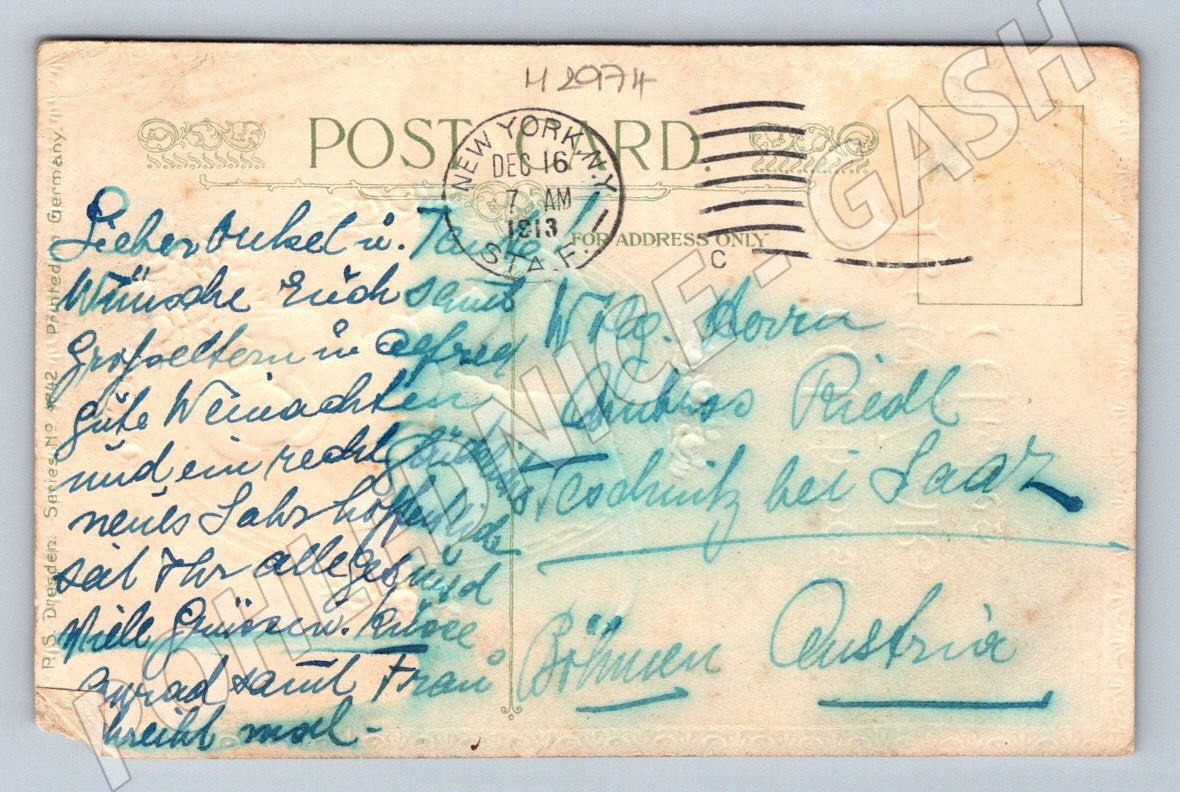 H 2974
POST CARD.
NEW YORK, N.Y.
DEC 16
7 AM
1913
STA. F.
C
FOR ADDRESS ONLY
P.S. Dresden. Series No. Printed in Germany.
Lieber Onkel u. Tante!
Wünsche Euch samt
Großeltern u Alfred
gute Weinachten
und ein recht
neues Jahr hoffentlich
seit Ihr alle gesund
Viele Grüsse u. Küsse
samt Frau
schreibt mal -
Herrn
Riedl
bei Saaz
Böhmen Austria
POHLEDNICE - GASH